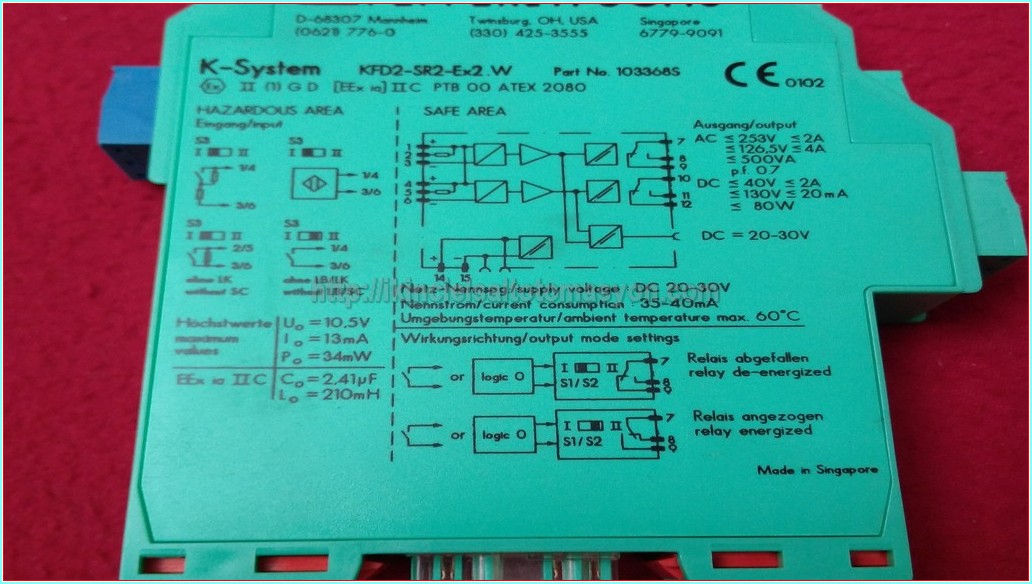 D-68307 Mannheim Twinsburg, OH, USA Singapore
(0621) 776-0 (330) 425-3555 6779-9091
K-System KFD2-SR2-Ex2.W Part No. 103368S CE 0102
Ex II (1) G D [EEx ia] IIC PTB 00 ATEX 2080
HAZARDOUS AREA
Eingang/input
S3 S3
I II I II
1/4 1/4
3/6 3/6
S3 S3
I II I II
2/5 1/4
3/6 3/6
ohne LK ohne LB/LK
without SC without LB/SC
Höchstwerte
maximum
values
Uo = 10.5V
Io = 13mA
Po = 34mW
EEx ia IIC
Co = 2.41µF
Lo = 210mH
SAFE AREA
1 + 7
2 8
3 - 9
4 + 10
5 11
6 - 12
+ -
14 15
Ausgang/output
AC ≤ 253V ≤ 2A
≤ 126.5V ≤ 4A
≤ 500VA
p.f. 0.7
DC ≤ 40V ≤ 2A
≤ 130V ≤ 20mA
≤ 80W
DC = 20-30V
Netz-Nennspg/supply voltage DC 20-30V
Nennstrom/current consumption 35-40mA
Umgebungstemperatur/ambient temperature max. 60°C
Wirkungsrichtung/output mode settings
or logic 0 I II S1/S2 7 8 9
Relais abgefallen
relay de-energized
or logic 0 I II S1/S2 7 8 9
Relais angezogen
relay energized
Made in Singapore